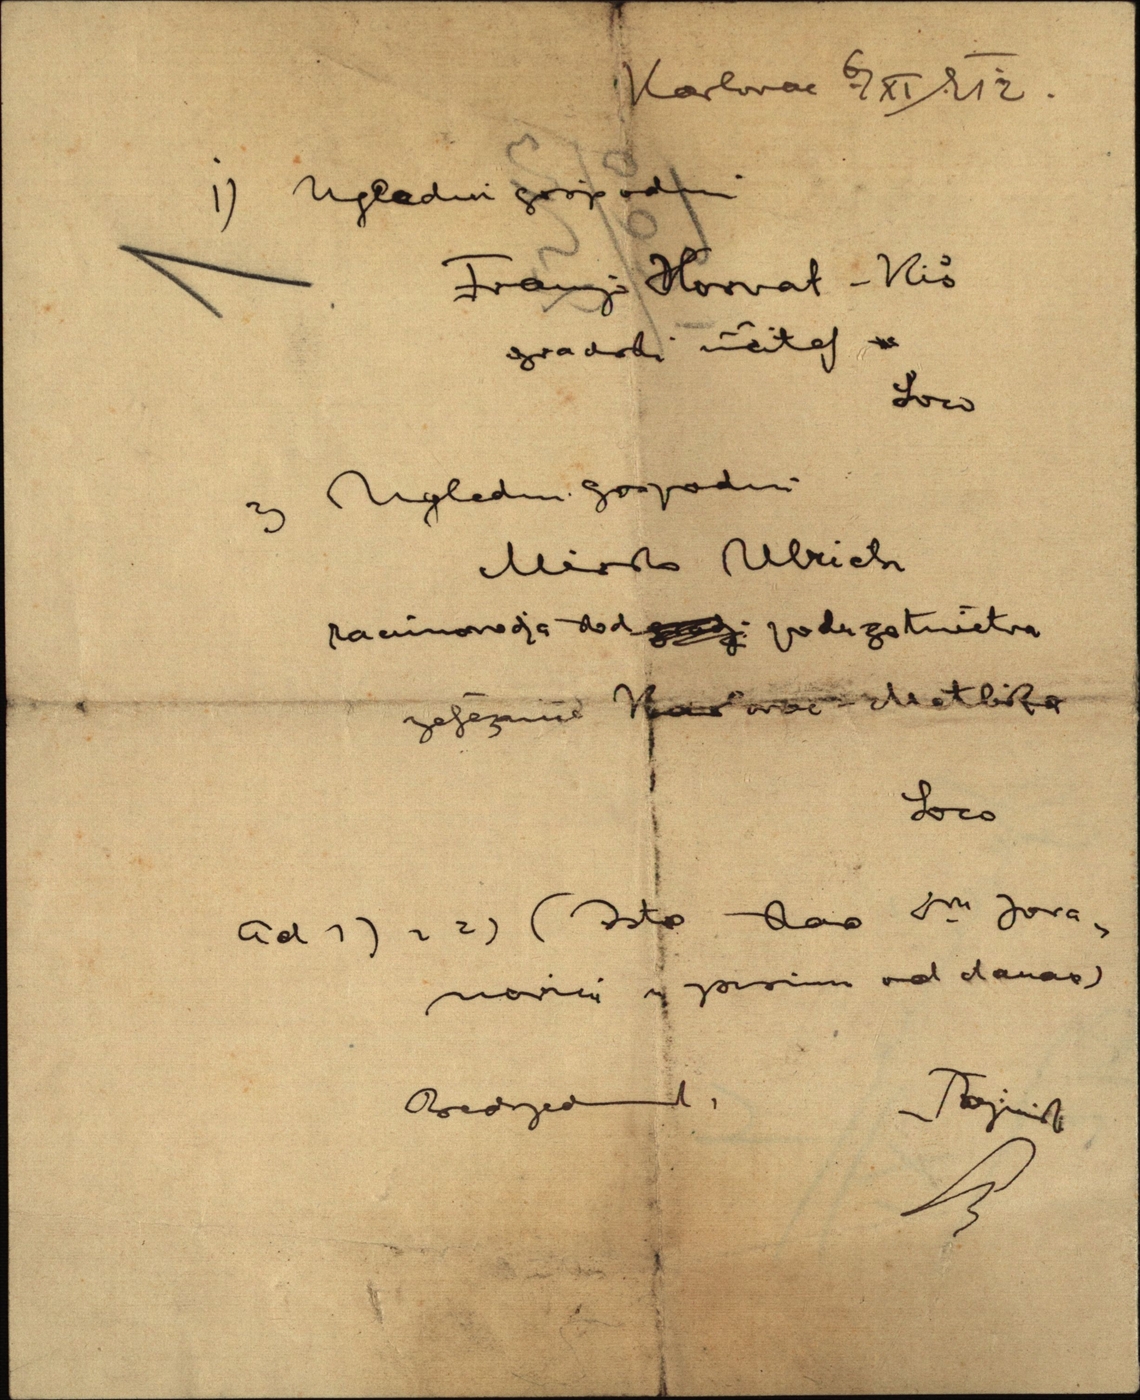 Karlovac 6/XI 912.
1) Ugledni gospodini
Franjo Horvat-Kiš
gradski učitelj
Loco
2) Ugledni gospodini
Mirko Ulrich
računovodja kod poduzetničtva
željeznice Karlovac-Metlika
Loco
ad 1) i 2) (Isto kao
od danas)
Predsjednik,